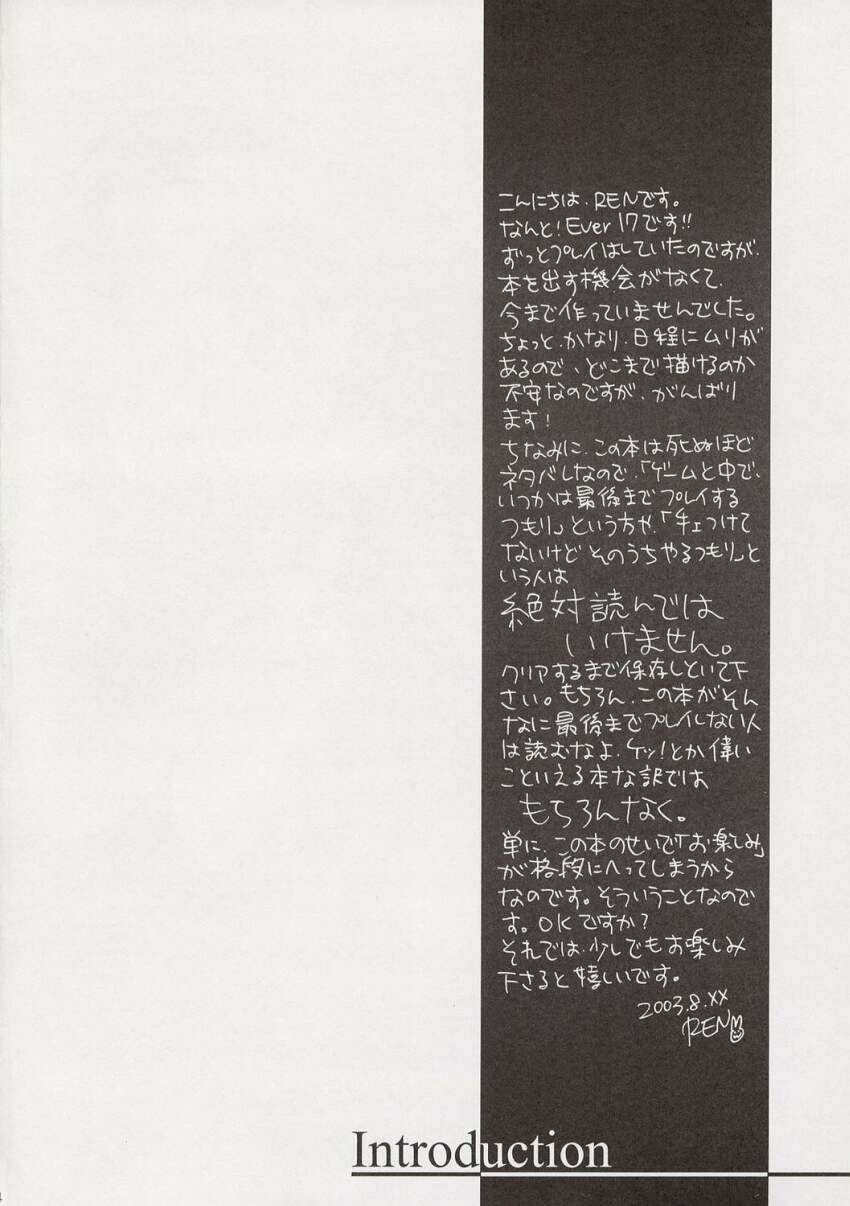 こんにちは、RENです。
なんと!Ever17です!!
ずっとプレイはしていたのですが、
本を出す機会がなくて、
今まで作っていませんでした。
ちょっと、かなり、日程にムリが
あるので、どこまで描けるのか
不安なのですが、がんばり
ます!
ちなみに、この本は死ぬほど
ネタバレなので、「ゲームと中で、
いつかは最後までプレイする
つもり」という方や、「手ェつけて
ないけどそのうちやるつもり」と
いう人は
絶対読んでは
いけません。
クリアするまで保存しといて下
さい。もちろん、この本がそん
なに最後までプレイしない人
は読むなよ、ケッ!とか偉い
こといえる本な訳では
もちろんなく。
単に、この本のせいで「お楽しみ」
が格段にへってしまうから
なのです。そういうことなので
す。OKですか?
それでは、少しでもお楽しみ
下さると嬉しいです。
2003.8.XX
REN
Introduction